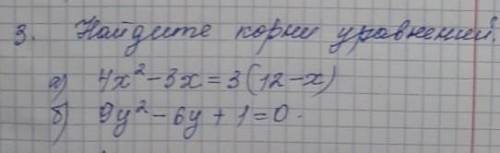 3. Найдите корни уравнений.
а) 4x² - 3x = 3(12 - x)
б) 9y² - 6y + 1 = 0.